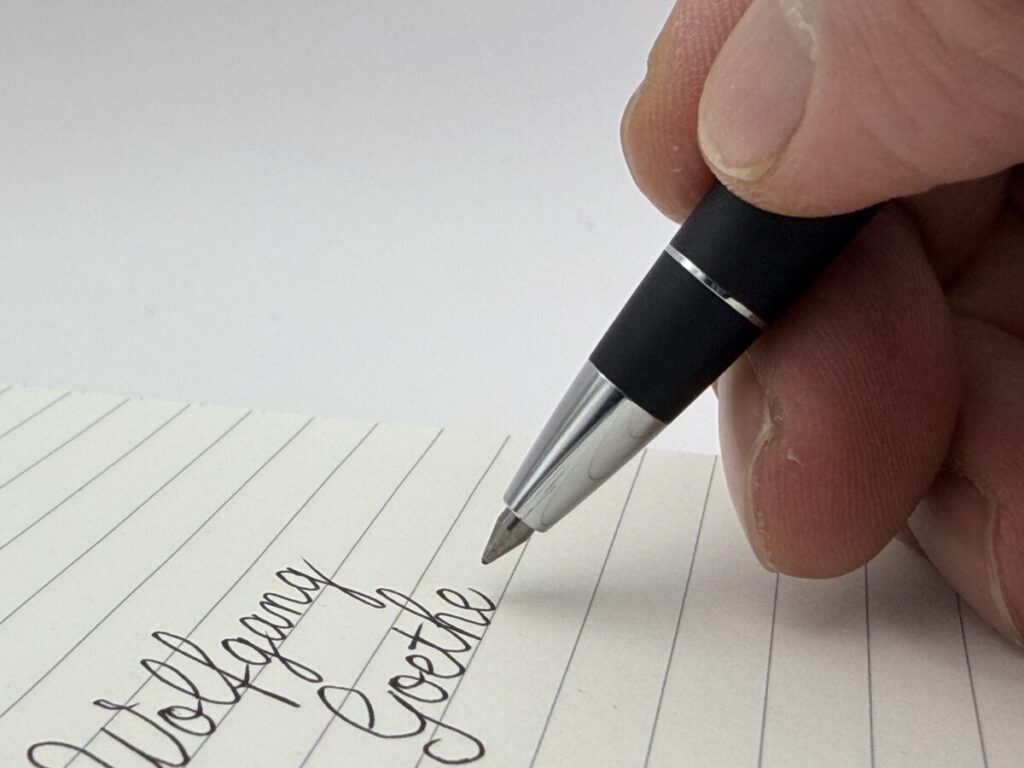 Wolfgang
Goethe